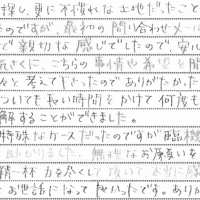 探し、更に不慣れな土地だったこと
たのですが、最初の問い合わせメー
で親切な感じでしたので、安心
続きくに、こちらの事情や希望を
々と考えて下さったのでありがたかった
ついても長い時間をかけて何度も
解することができました。
特殊なケースだったのですが臨機
助かりました。無理なお願いを
精一杯力を尽くして頂いて本当に感
お世話になって良かったです。ありが